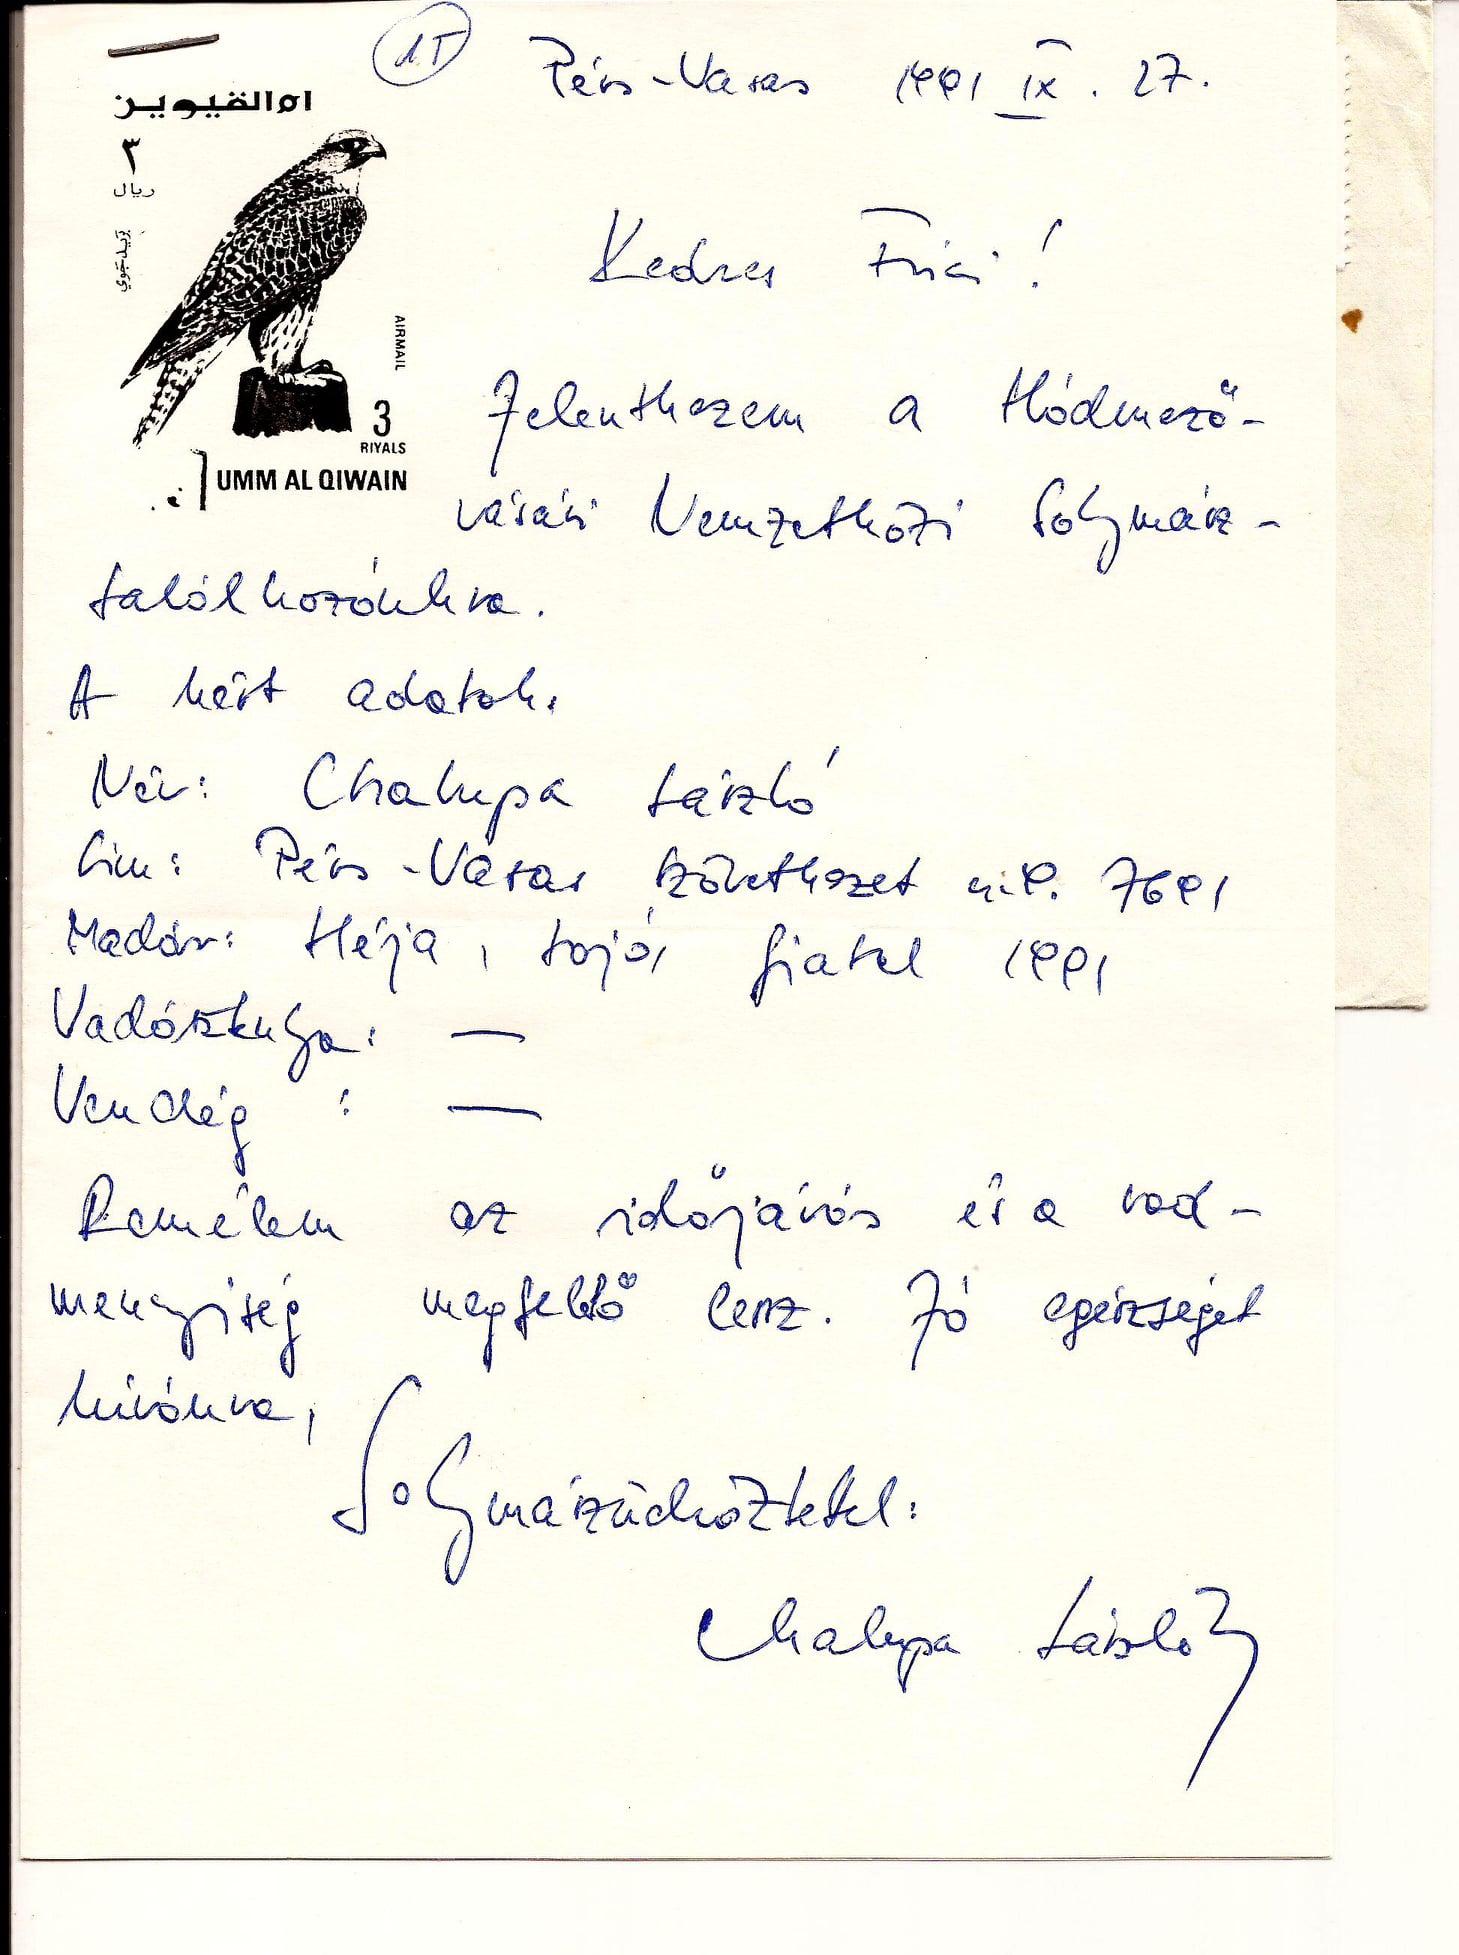 15
Pécs-Vasas 1991 IX. 27.
ام القيوين
٣
ريال
بريد جوي
AIRMAIL
3
RIYALS
UMM AL QIWAIN
Kedves Frici!
Jelentkezem a Hódmező-
vásári Nemzetközi Solymász-
találkozónkra.
A kért adatok:
Név: Chalupa László
Cím: Pécs-Vasas Szövetkezet u. 7691
Madár: Héja, tojó, fiatal 1991
Vadászkutya: —
Vendég : —
Remélem az időjárás és a vad-
menyiség megfelelő lesz. Jó egészséget
kívánva,
Solymászüdvözlettel:
Chalupa László